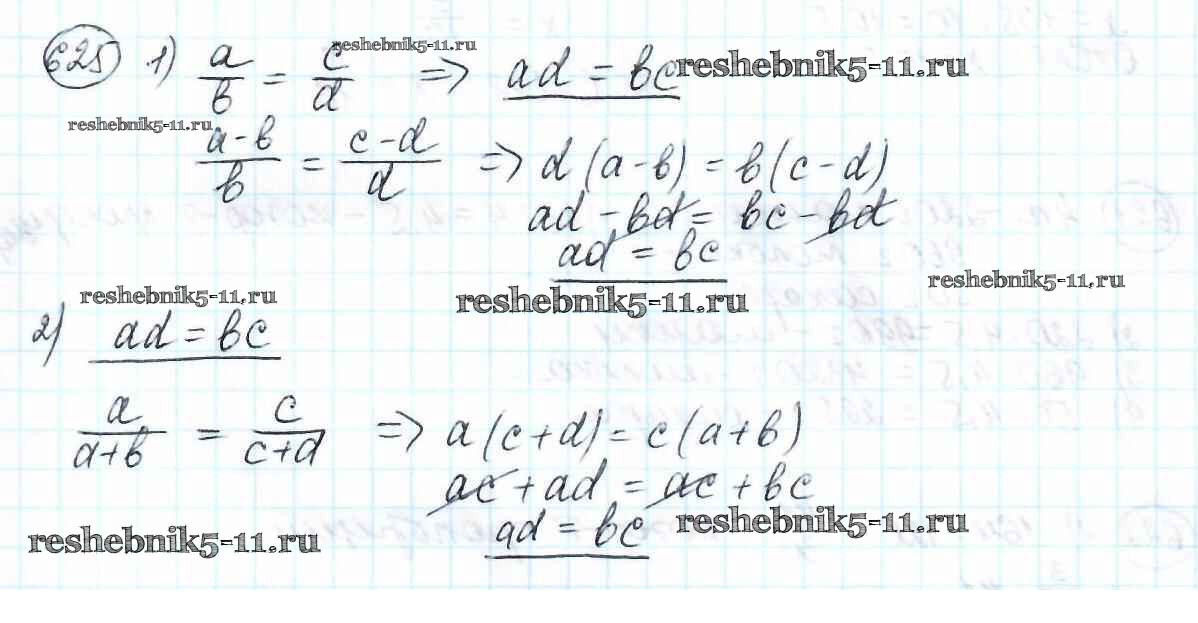 625 1) a/b = c/d => ad = bc
reshebnik5-11.ru
reshebnik5-11.ru
reshebnik5-11.ru
a-b/b = c-d/d => d(a-b) = b(c-d)
ad - bd = bc - bd
ad = bc
reshebnik5-11.ru
reshebnik5-11.ru
reshebnik5-11.ru
2) ad = bc
a/a+b = c/c+d => a(c+d) = c(a+b)
ac + ad = ac + bc
ad = bc
reshebnik5-11.ru
reshebnik5-11.ru